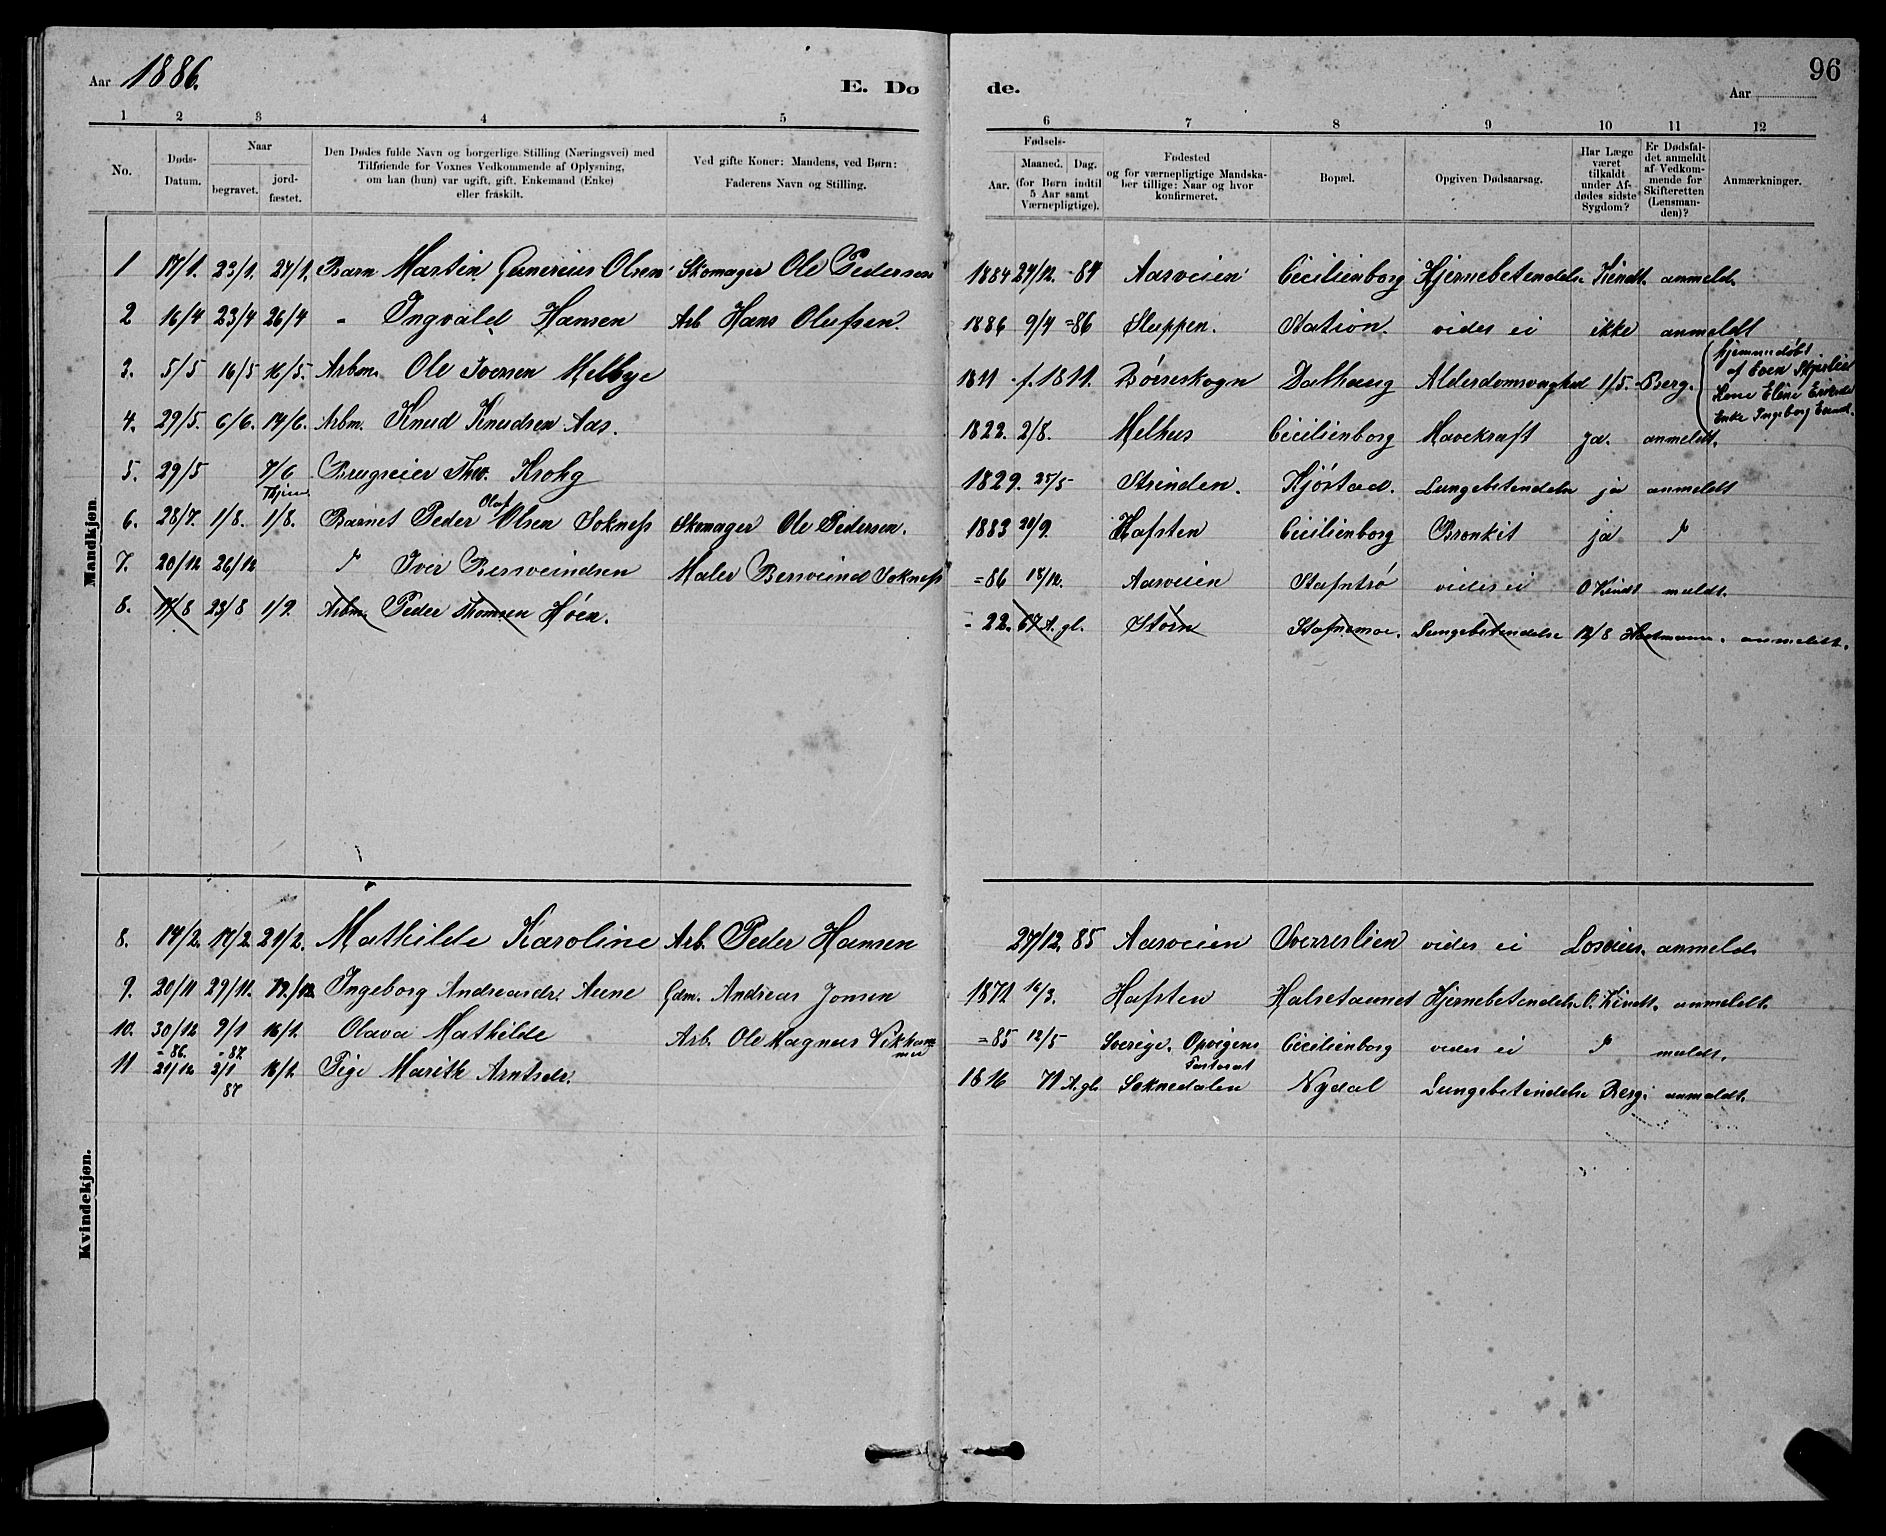 Aar 1886. E. Dø de. Aar 96
1 2 3 4 5 6 7 8 9 10 11 12
No. Døds-Datum. Naar begravet. jord-fæstet. Den Dødes fulde Navn og borgerlige Stilling (Næringsvei) med Tilføiende for Voxnes Vedkommende af Oplysning, om han (hun) var ugift, gift, Enkemand (Enke) eller fråskilt. Ved gifte Koner: Mandens, ved Børn: Faderens Navn og Stilling. Fødsels- Aar. Maaned. Dag. (for Børn indtil 5 Aar samt Værnepligtige). Fødested og for værnepligtige Mandskaber tillige: Naar og hvor konfirmeret. Bopæl. Opgiven Dødsaarsag. Har Læge været tilkaldt under Afdødes sidste Sygdom? Er Dødsfaldet anmeldt af Vedkommende for Skifteretten (Lensmanden)? Anmærkninger.
Mandkjøn
1 17/1. 23/1. 24/1. Barn Martin Gunerius Olsen Skomager Ole Pedersen 1884 24/12 -84 Aasveien Cecilienborg Hjernebetendelse Kindt. anmeldt
2 16/4 23/4 26/4 - Ingvald Hansen Arb Hans Olufsen. 1886 9/4 =86 Sluppen. Station. vides ei ikke anmeldt
3. 5/5 16/5 16/5. Arbm. Ole Iversen Melbye 1811 f. 1811. Bøereskogn Dalhaug Alderdomsvaghed 1/5. Berg.
hjemmedøbt
af Even
Lene Eline
Enke Ingeborg
4. 29/5. 6/6. 14/6. Arbm. Knud Knudsen Aas. 1822. 2/8. Melhus Cecilienborg Mavekraft ja. anmeldt.
5. 29/5 7/6 Brugseier Thv. Krohg 1829. 25/5 Strinden. Kjøstad. Lungebetendelse ja anmeldt
6. 28/7. 1/8. 1/8. Barnet Peder Olaf Olsen Sokness Skomager Ole Pedersen. 1883 20/9. Hafsten Cecilienborg Bronkit ja
7. 20/12 26/12 Iver Bersveindsen Maler Bersveind Sokness =86 Aasveien Stafntrø vides ei O Kindt meldt.
8. 17/8 23/8 1/9. Arbm. Peder Thomsen Høen. - 22. 67 A. gl. Støren Stafnemoe. Lungebetendelse 12/8 anmeldt.
Kvindekjøn.
8. 14/2. 17/2. 21/2. Mathilde Karoline Arb. Peder Hansen 27/12 85 Aasveien Sverreslien vides ei anmeldt
9. 20/11 29/11. 19./12. Ingeborg Andreasdr. Aune Gdm. Andreas Jonsen 1871 Hafsten Halsetaunet Hjernebetendelse O. Kindt. anmeldt.
10. 30/12 =86. 9/1 =87 16/1. Olava Mathilde Arb. Ole Magnus =85 12/5 Sverige. Pastorat Cecilienborg vides ei meldt.
11 21/12 2/1 87 16/1 Pige Marith Arntsdr. 1816 71 A. gl. Soknedalen Nydal Lungebetendelse Berg: anmeldt.